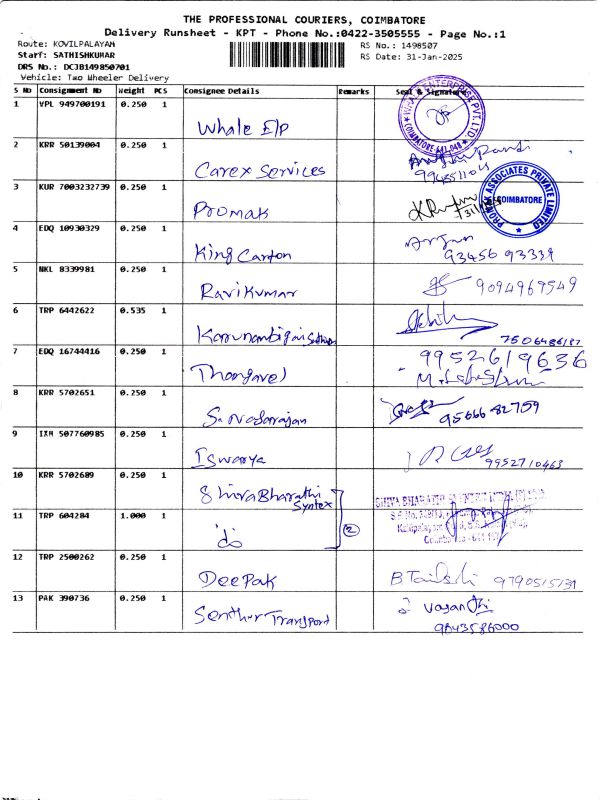 THE PROFESSIONAL COURIERS, COIMBATORE
Delivery Runsheet - KPT - Phone No.:0422-3505555 - Page No.:1
Route: KOVILPALAYAM
RS No.: 1498507
Staff: SATHISHKUMAR
RS Date: 31-Jan-2025
DRS No.: DCJB149850701
Vehicle: Two Wheeler Delivery
S No Consignment No Weight PCS Consignee Details Remarks Seal & Signature
1 VPL 949700191 0.250 1 Whale E/P
2 KRR 50139004 0.250 1 Carex Services
3 KUR 7003232739 0.250 1 Promak
PROMAK ASSOCIATES PRIVATE LIMITED COIMBATORE
4 EDQ 10930329 0.250 1 King Carton Arjun
93456 93339
5 NKL 8339981 0.250 1 Ravikumar 9094969549
6 TRP 6442622 0.535 1
7506486187
7 EDQ 16744416 0.250 1 Thangavel 9952619636
8 KRR 5702651 0.250 1 95666 82759
9 IXM 507760985 0.250 1 Iswarya 9952710463
10 KRR 5702689 0.250 1 Shiva Bharathi
Syntex
11 TRP 604284 1.000 1 do 2
12 TRP 2500262 0.250 1 Deepak 9790515131
13 PAK 390736 0.250 1 Senthur Transport Vasanthi
9843586000